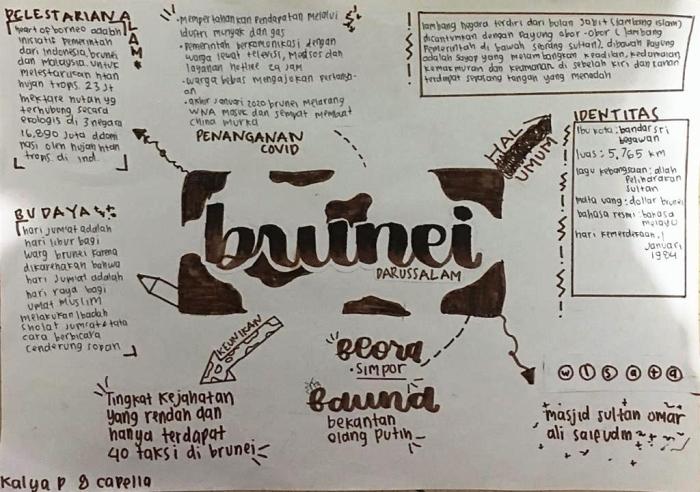 PELESTARIAN
ALAM
heart of borneo adalah
inisiatif pemerintah
dari Indonesia, brunei
dan malaysia. untuk
melestarikan htan
hujan trops. 23 Jt
hektare hutan yg
terhubung secara
ekologis di 3 negara
16,890 Juta didomi
nasi oleh hujan htan
trops. di ind.
• Mempertahankan Pendapatan Melalui
idustri minyak dan gas
• Pemerintah berkomunikasi dengan
warga lewat televisi, Medsos dan
layanan hotline 24 jam
- warga bebas Mengajukan pertanya-
an
• akhir Januari 2020 brunei Melarang
WNA Masuk dan sempat membuat
China Murka
PENANGANAN
COVID
lambang negara terdiri dari bulan sabit (lambang islam)
dicantumkan dengan payung abor-abor (lambang
Pemerintah di bawah seorang sultan). dibawah Payung
adalah sayap yang melambangkan keadilan, kedamaian,
kemakmuran dan keamanan di sebelah kiri dan kanan
terdapat sepasang tangan yang menadah
HAL
UMUM
IDENTITAS
Ibu kota: bandar sri
begawan
luas: 5,765 km
lagu kebangsaan: allah
Peliharakan
Sultan
mata uang: dollar brunei
bahasa resmi: bahasa
melayu
hari kemerdekaan: 1
Januari
1984
brunei
DARUSSALAM
BUDAYA
hari jum'at adalah
hari libur bagi
warg brunei karena
dikarenakan bahwa
hari Jum'at adalah
hari raya bagi
umat Muslim
melakukan Ibadah
sholat jum'at & tata
cara berbicara
cenderung sopan
KEUNIKAN
Tingkat Kejahatan
yang rendah dan
hanya terdapat
40 taksi di brunei
flora
• SIMPOR
fauna
bekantan
olang putih
wisata
masjid sultan omar
ali saifudin
Kalya P & capella